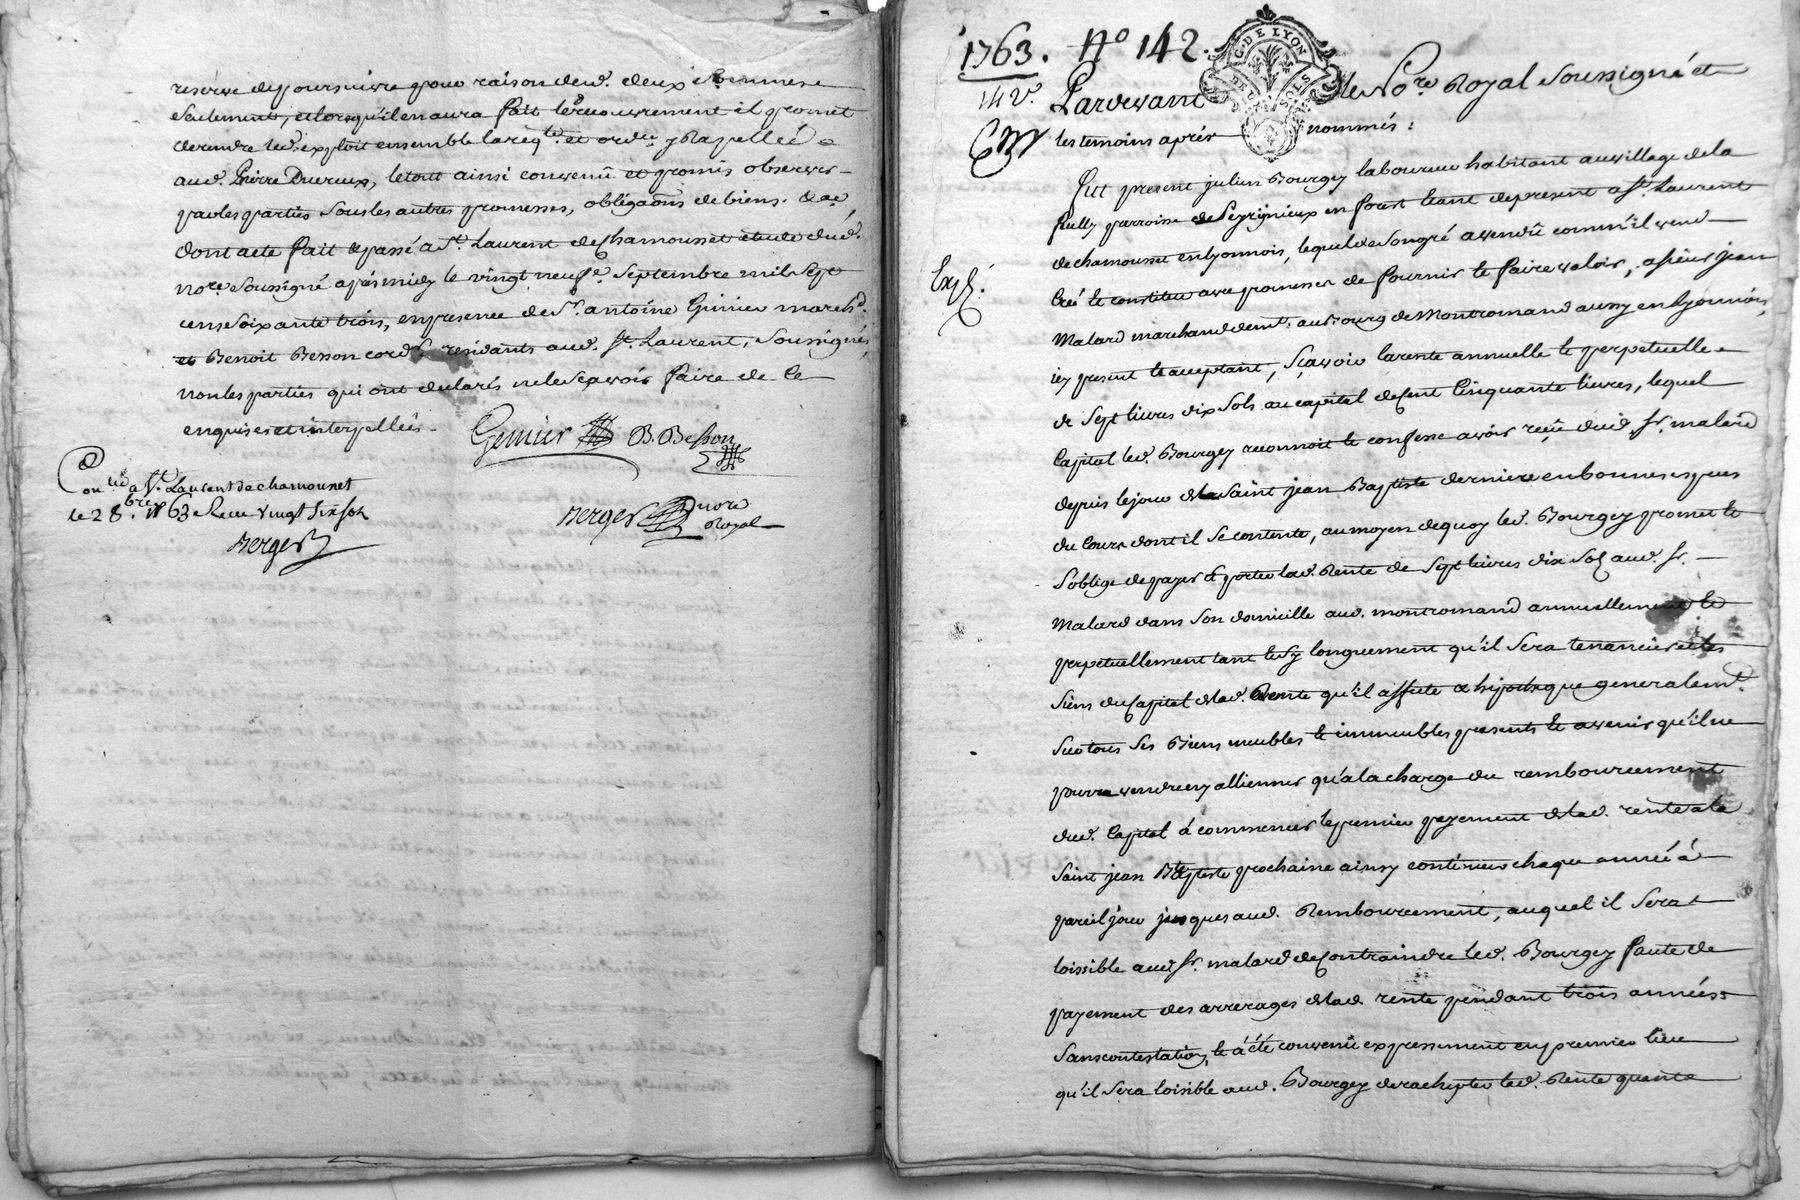 reserve de poursuivre pour raison dud. deux
seulement, et lorsqu'il en aura fait le recouvrement il promet
de rendre led. exploit ensemble la reqte. et ordce y Rapellée
aud. Pierre Ducreux, le tout ainsi convenû et promis observer
par les parties sous les autres promesses, obligaons de biens. &a.
dont acte fait et passé a St. Laurent de Chamousset étude dud.
nore. soussigné après midy le vingt neuf e. septembre mil sept
cens soixante trois, en presence de Sr. antoine Genier march d.
et Benoit Besson cord r. residants aud. St. Laurent, soussignés,
non les parties qui ont declarés ne le sçavoir faire de ce
enquises et interpellées.
Genier B. Besson
Berger nore Royal
Con. lé a St. Laurent de chamousset
le 28. bre 1763 Reçu vingt six sols
Berger
1763. No 142.
G. DE LYON
DEUX SOLS
142e.
Pardevant le Nore. Royal soussigné et
les temoins aprés nommés:
fut present julien Bourgey laboureur habitant au village de la
fully parroisse de Peyrignieux en forest étant de present a St. Laurent
de chamousset en lyonnois, lequel de son gré a vendû comm'il vend
Exp é.
Créé et constitue avec promesses de fournir et faire valoir, a sieur jean
Malard marchand demt. au Bourg de Montromand aussy en lyonnois,
icy present et acceptant, sçavoir la rente annuelle et perpetuelle
de sept livres dix sols au capital de cent cinquante livres, lequel
Capital led. Bourgey reconnoit et confesse avoir reçû dud. Sr. malard
depuis le jour de la saint jean Baptiste derniere en bonnes especes
du Cours dont il se contente, au moyen de quoy led. Bourgey promet et
s'oblige de payer et porter lad. Rente de sept livres dix sols aud. Sr.
Malard dans son domicille aud. montromand annuellement et
perpetuellement tant et sy longuement qu'il sera tenancier et les
siens du Capital de lad. Rente qu'il affecte et hipotheque generalemt.
sur tous ses Biens meubles et immeubles presents et a venir qu'il ne
pourra vendre ny alliener qu'a la charge du rembourcement
dud. Capital à commencer le premier payement de lad. rente a la
saint jean Bte. prochaine ainsy continuer chaque année à
pareil jour jusques aud. Rembourcement, auquel il sera
loissible aud. Sr. malard de contraindre led. Bourgey faute de
payement des arrerages de lad. rente pendant trois années
sans contestation, et à été convenû expressement en premier lieu
qu'il sera loisible aud. Bourgey de rachepter led. Rente quant a